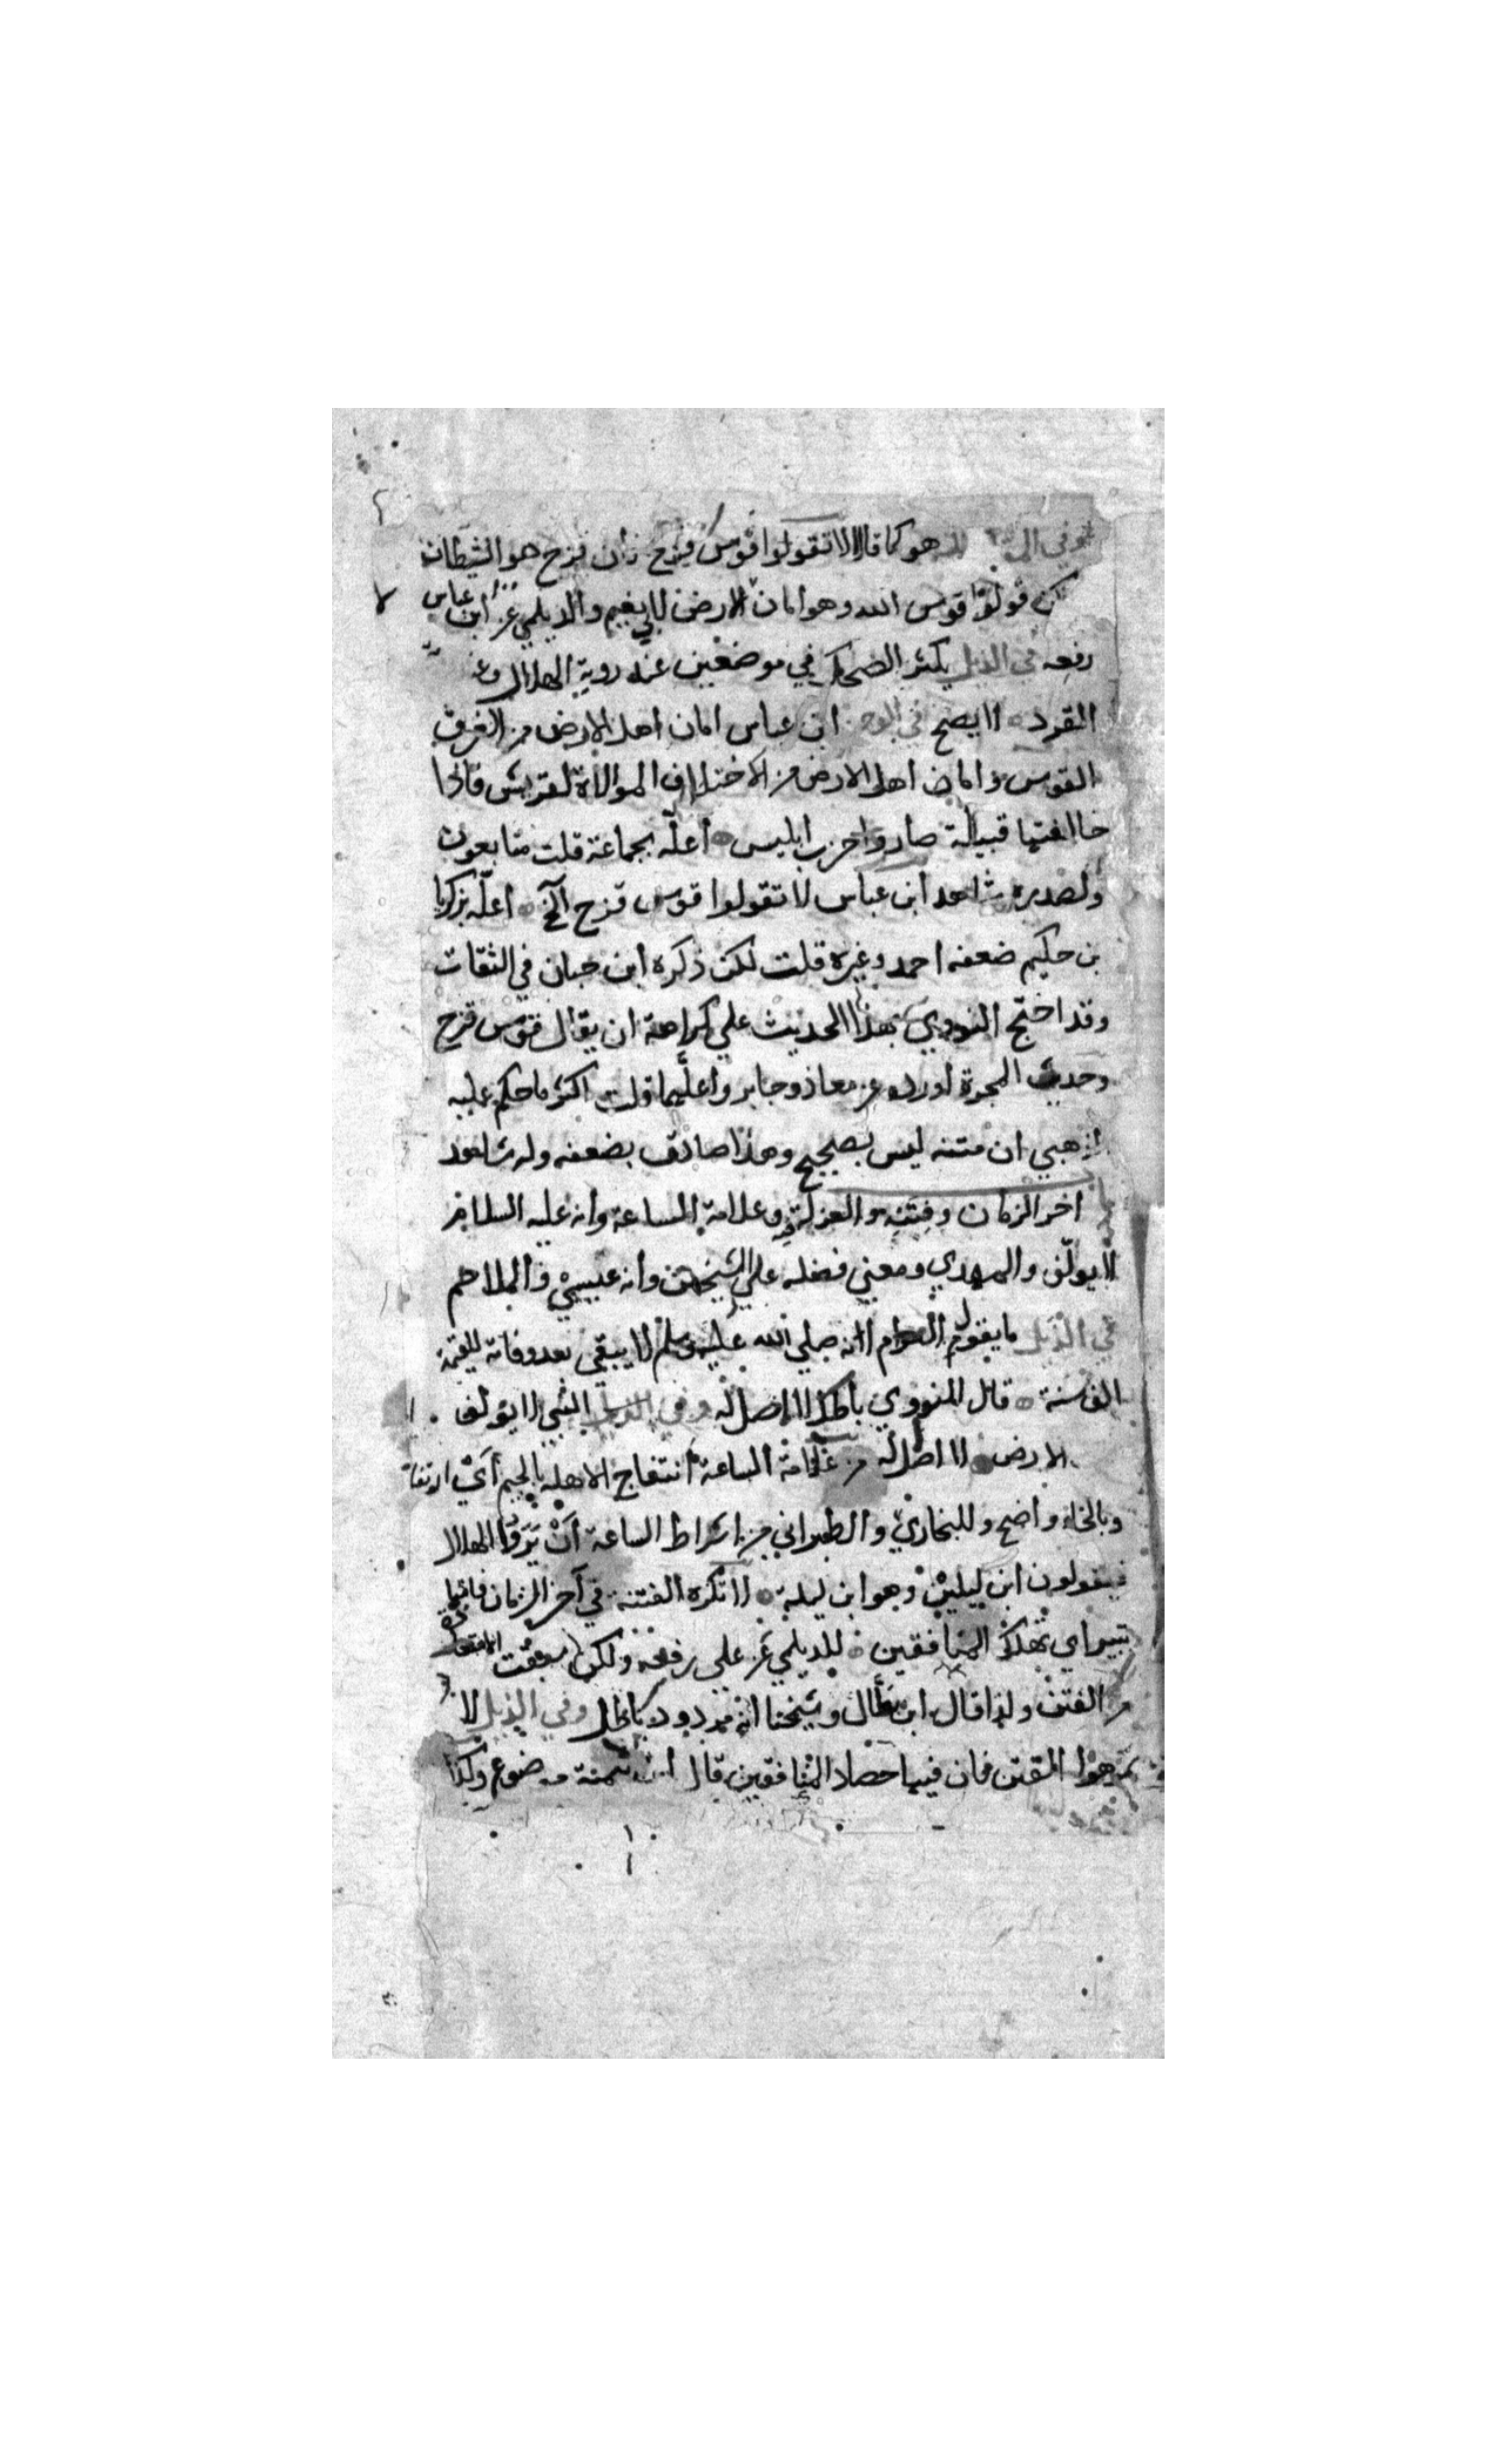 وفي هو كما قال لا تقولوا قوس قزح فأن قزح هو الشيطان
لكن قولوا قوس الله وهو امان الارض لابي نعيم والديلمي عن ابن عباس
رفعه في الذيل يكثر الضحك في موضعين عند روية الهلال وعند
القرد لا يصح في الوجيز ابن عباس امان اهل الارض من الغرق
القوس وامان اهل الارض من الاختلاف الموالاة لقريش فاذا
خالفتها قبيلة صاروا حزب ابليس أعلّه بجماعة قلت متابعون
ولصدره شاهد ابن عباس لا تقولوا قوس قزح آلخ اعلّه بزكريا
بن حكيم ضعفه احمد وغيره قلت لكن ذكره ابن حبان في الثقات
وقد احتج النووي بهذا الحديث علي كراهة ان يقال قوس قزح
وحديث المجرة اورده عن معاذ وجابر واعلهما قلت اكثر ما حكم عليه
الذهبي ان متنه ليس بصحيح وهذا صادق بضعفه وله شاهد
اخر الزمان وفتنه والعزلة فيه وعلامة الساعة وأنه عليه السلام
لا يولّف والمهدي ومعني فضله علي الشيخين وأنه عيسي والملاحم
في الذيل ما يقول العوام انه صلي الله عليه وسلم لا يبقي بعد وفاته للقيمة
الف سنة قال النووي باطل لا اصل له وفي الذيل النبي لا يؤلف
الارض لا اصل له من علامة الساعة أنتفاج الاهلة بالجيم أي ارتفاع
وبالخاء واضح وللبخاري والطبراني من اشراط الساعة أن يَرَوا الهلال
فيقولون ابن ليلتين وهو ابن ليلة لا تكره الفتنة في آخر الزمان فانها
تبير اي تهلك المنافقين للديلمي عن علي رفعه ولكن
من الفتن ولذا قال ابن بطال وشيخنا انه مردود باطل وفي الذيل لا
تكرهوا الفتن فان فيها حصاد المنافقين قال ابن تيمية موضوع وكذا